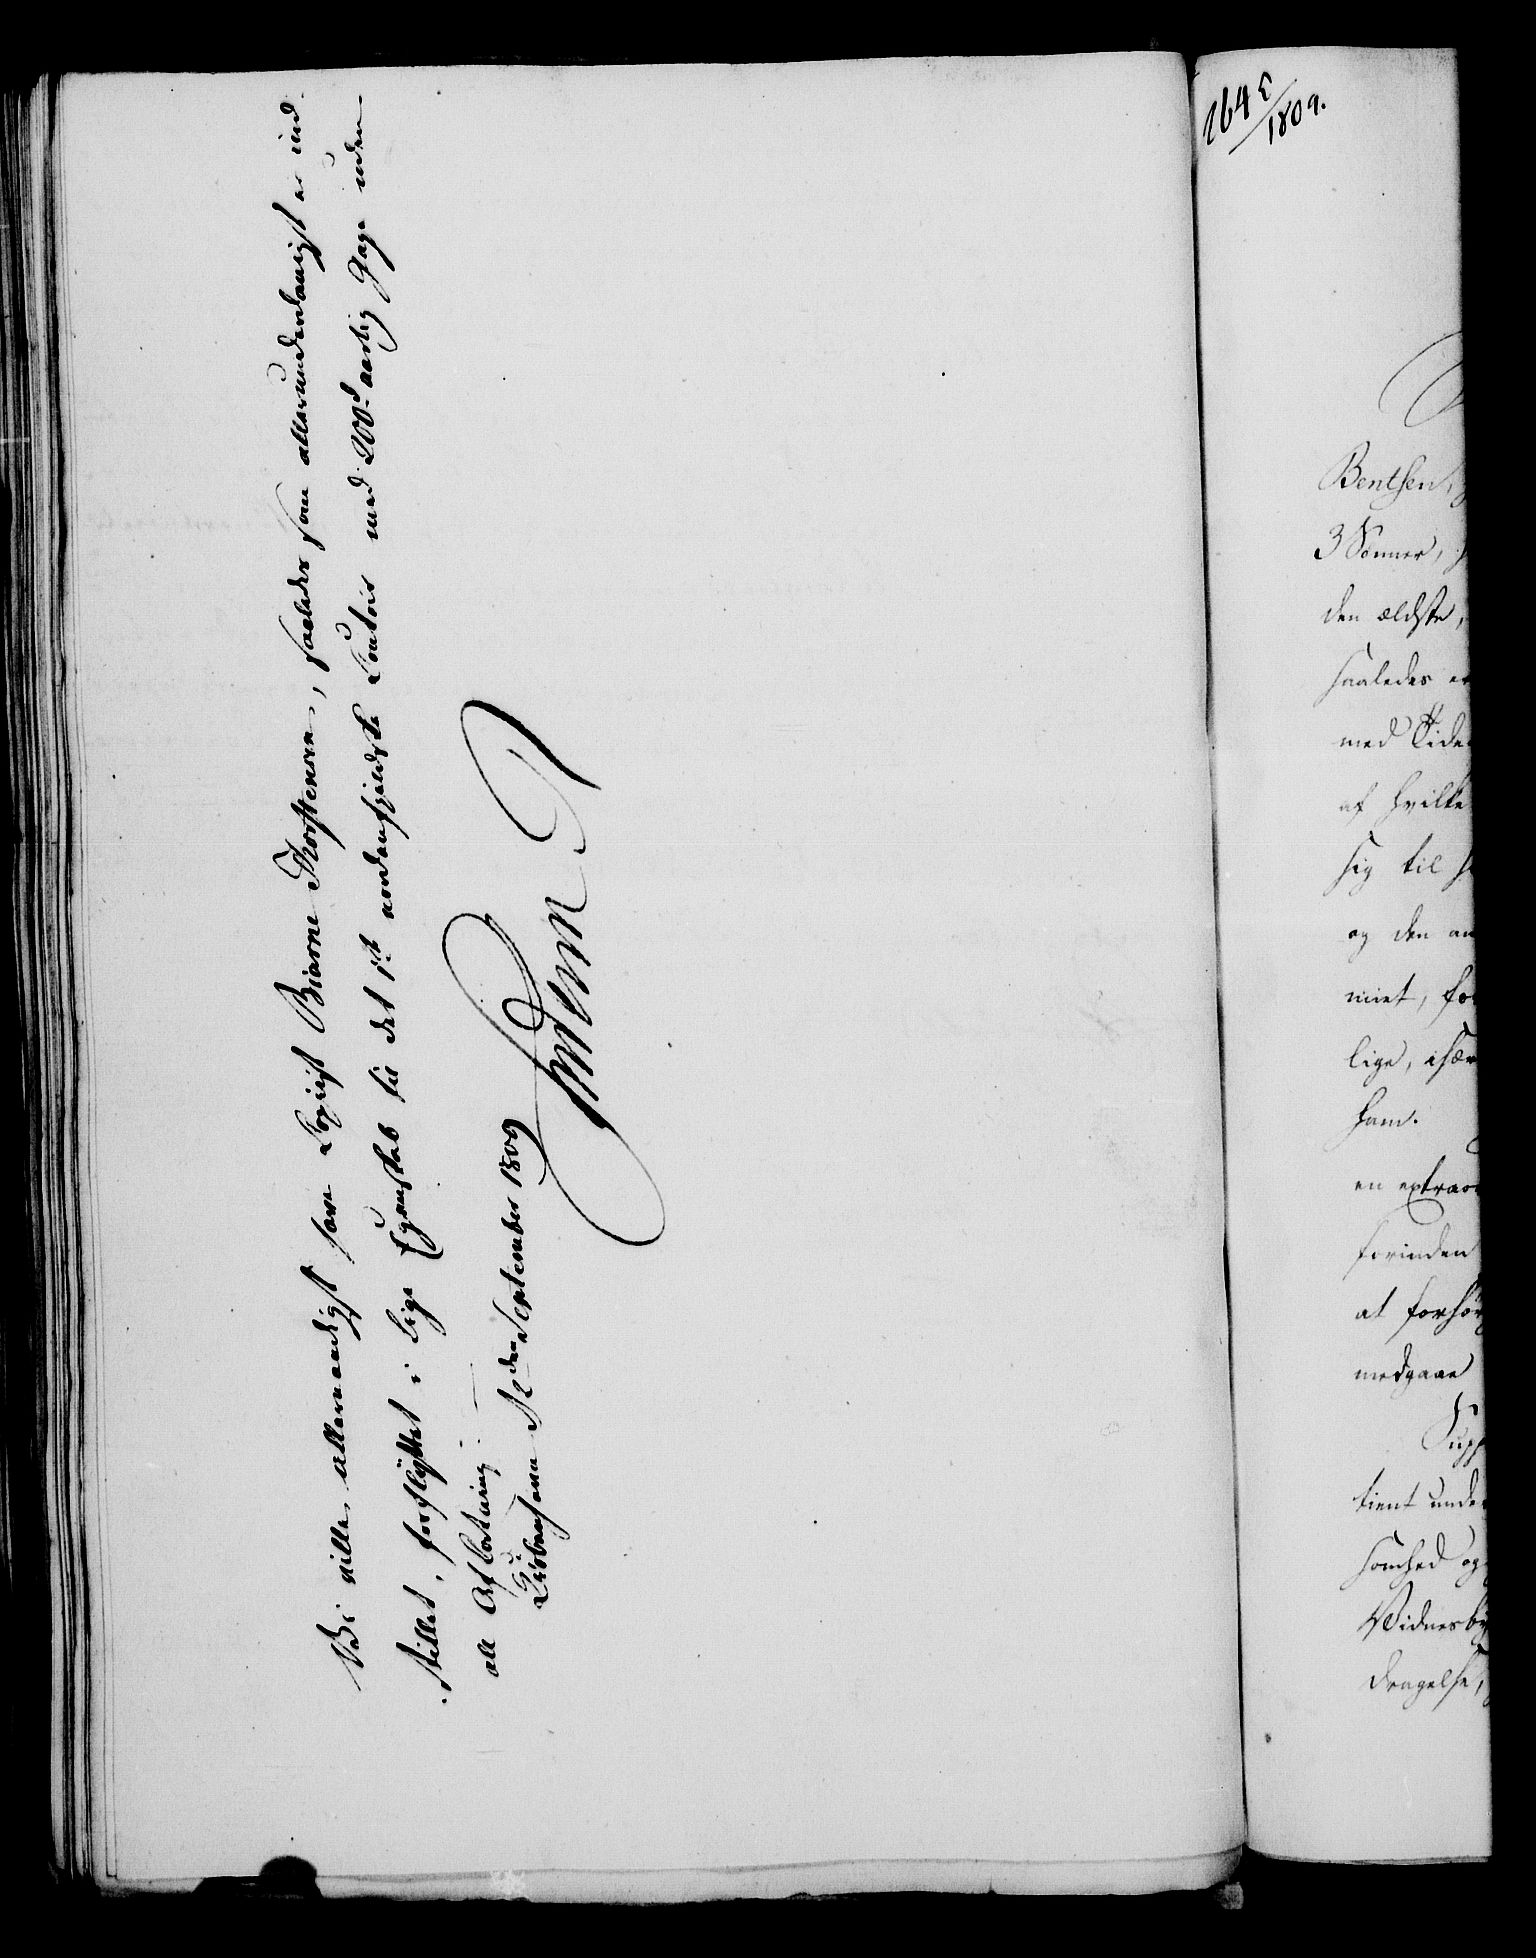 Vi ville allernaadigst have Copiist Biarne Thorstensen, saaledes som allerunderdanigst er ind
stillet, forflyttet i lige Egenskab til det 1ste nordenfjeldske Contoir med 200 d aarlig Gage uden
al Afkortning.
Kiöbenhavn d 12den September 1809
Frederik R
1645/1809.
Bentsen,
3 Sönner,
den ældste,
saaledes er
med Tide
af hvilke
sig til
og den an
niert, for
lige, især
ham.
en extraor
forinden
at forsör
medgaae
Supp
tient unde
somhed og
Vidnesby
dragelse,